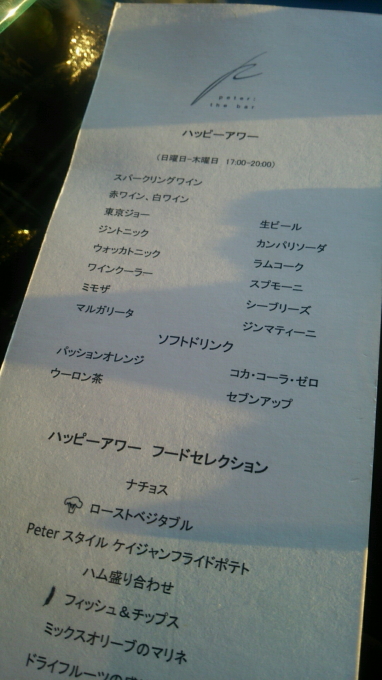 peter:
the bar
ハッピーアワー
(日曜日-木曜日 17:00-20:00)
スパークリングワイン
赤ワイン、白ワイン
東京ジョー
ジントニック
ウォッカトニック
ワインクーラー
ミモザ
マルガリータ
生ビール
カンパリソーダ
ラムコーク
スプモーニ
シーブリーズ
ジンマティーニ
ソフトドリンク
パッションオレンジ
ウーロン茶
コカ・コーラ・ゼロ
セブンアップ
ハッピーアワー フードセレクション
ナチョス
ローストベジタブル
Peter スタイル ケイジャンフライドポテト
ハム盛り合わせ
フィッシュ＆チップス
ミックスオリーブのマリネ
ドライフルーツの